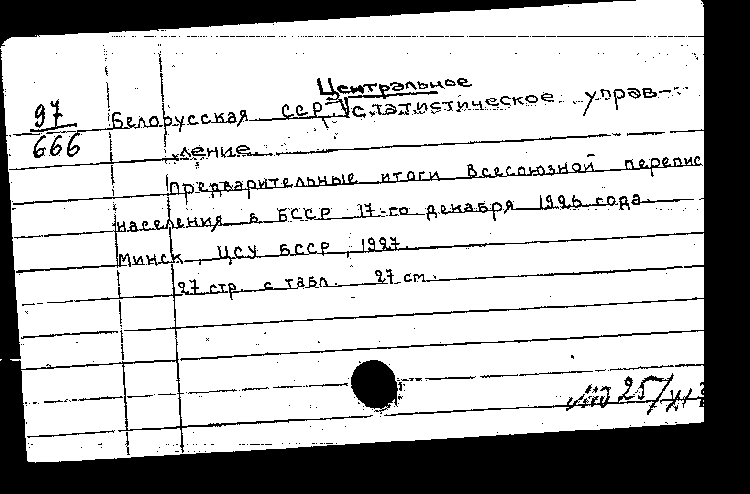 Центральное
97 Белорусская ССР. Статистическое управ-
666 ление.
Предварительные итоги Всесоюзной перепис
населения в БССР 17-го декабря 1926 года.
Минск, ЦСУ БССР, 1927.
27 стр. с табл. 27 см.
25/XI